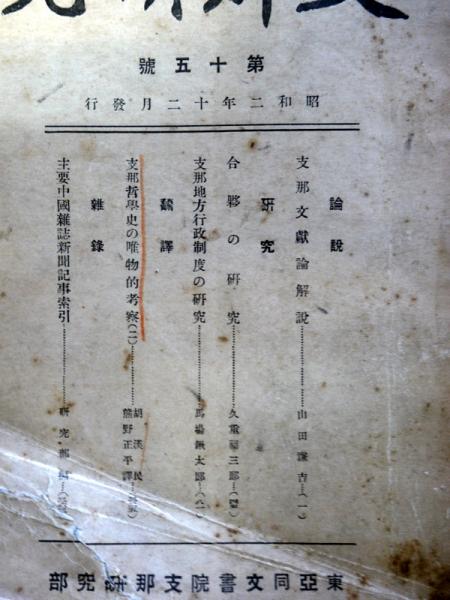 支那研究
第十五號
昭和二年十二月發行
論說
支那文獻論解說……山田謙吉…(一)
研究
合夥の研究……久重福三郎…
支那地方行政制度の研究……馬場鍬太郎…
飜譯
支那哲學史の唯物的考察(二)……胡漢民
熊野正平譯…
雜錄
主要中國雜誌新聞記事索引……研究部編…
東亞同文書院支那硏究部